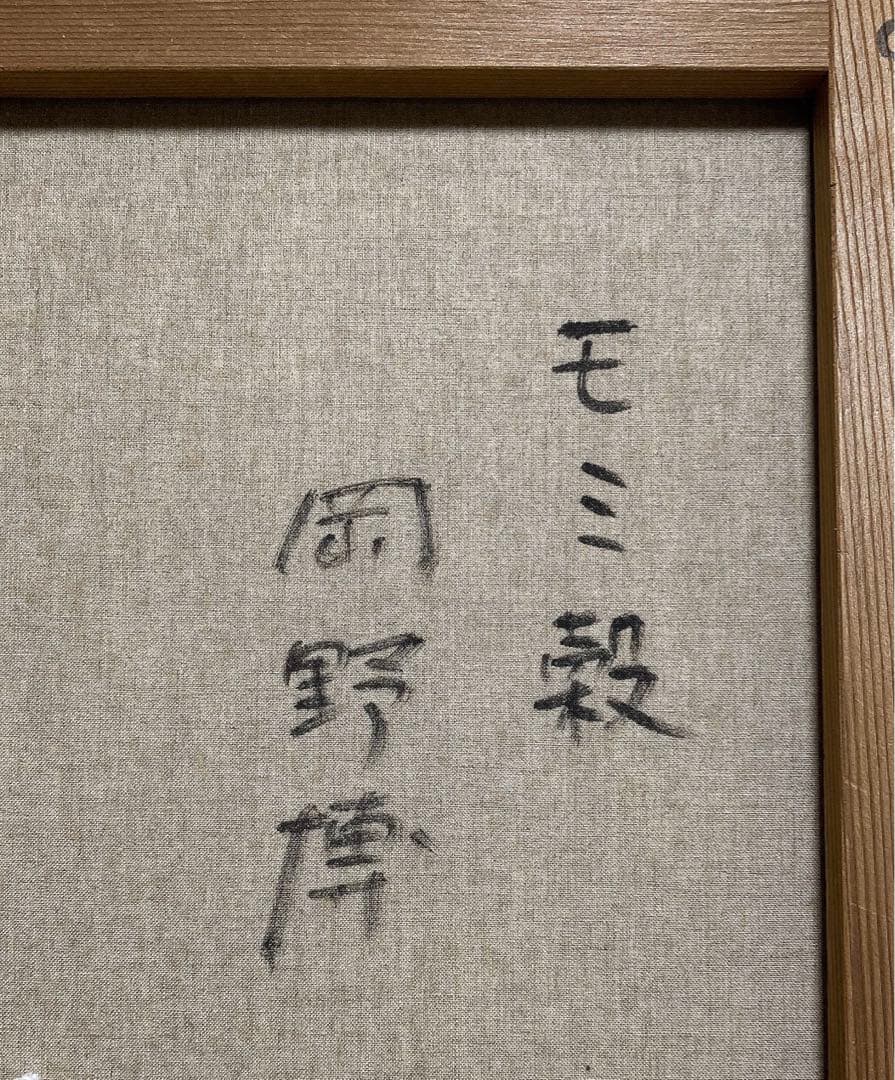 モミ殻
岡野博